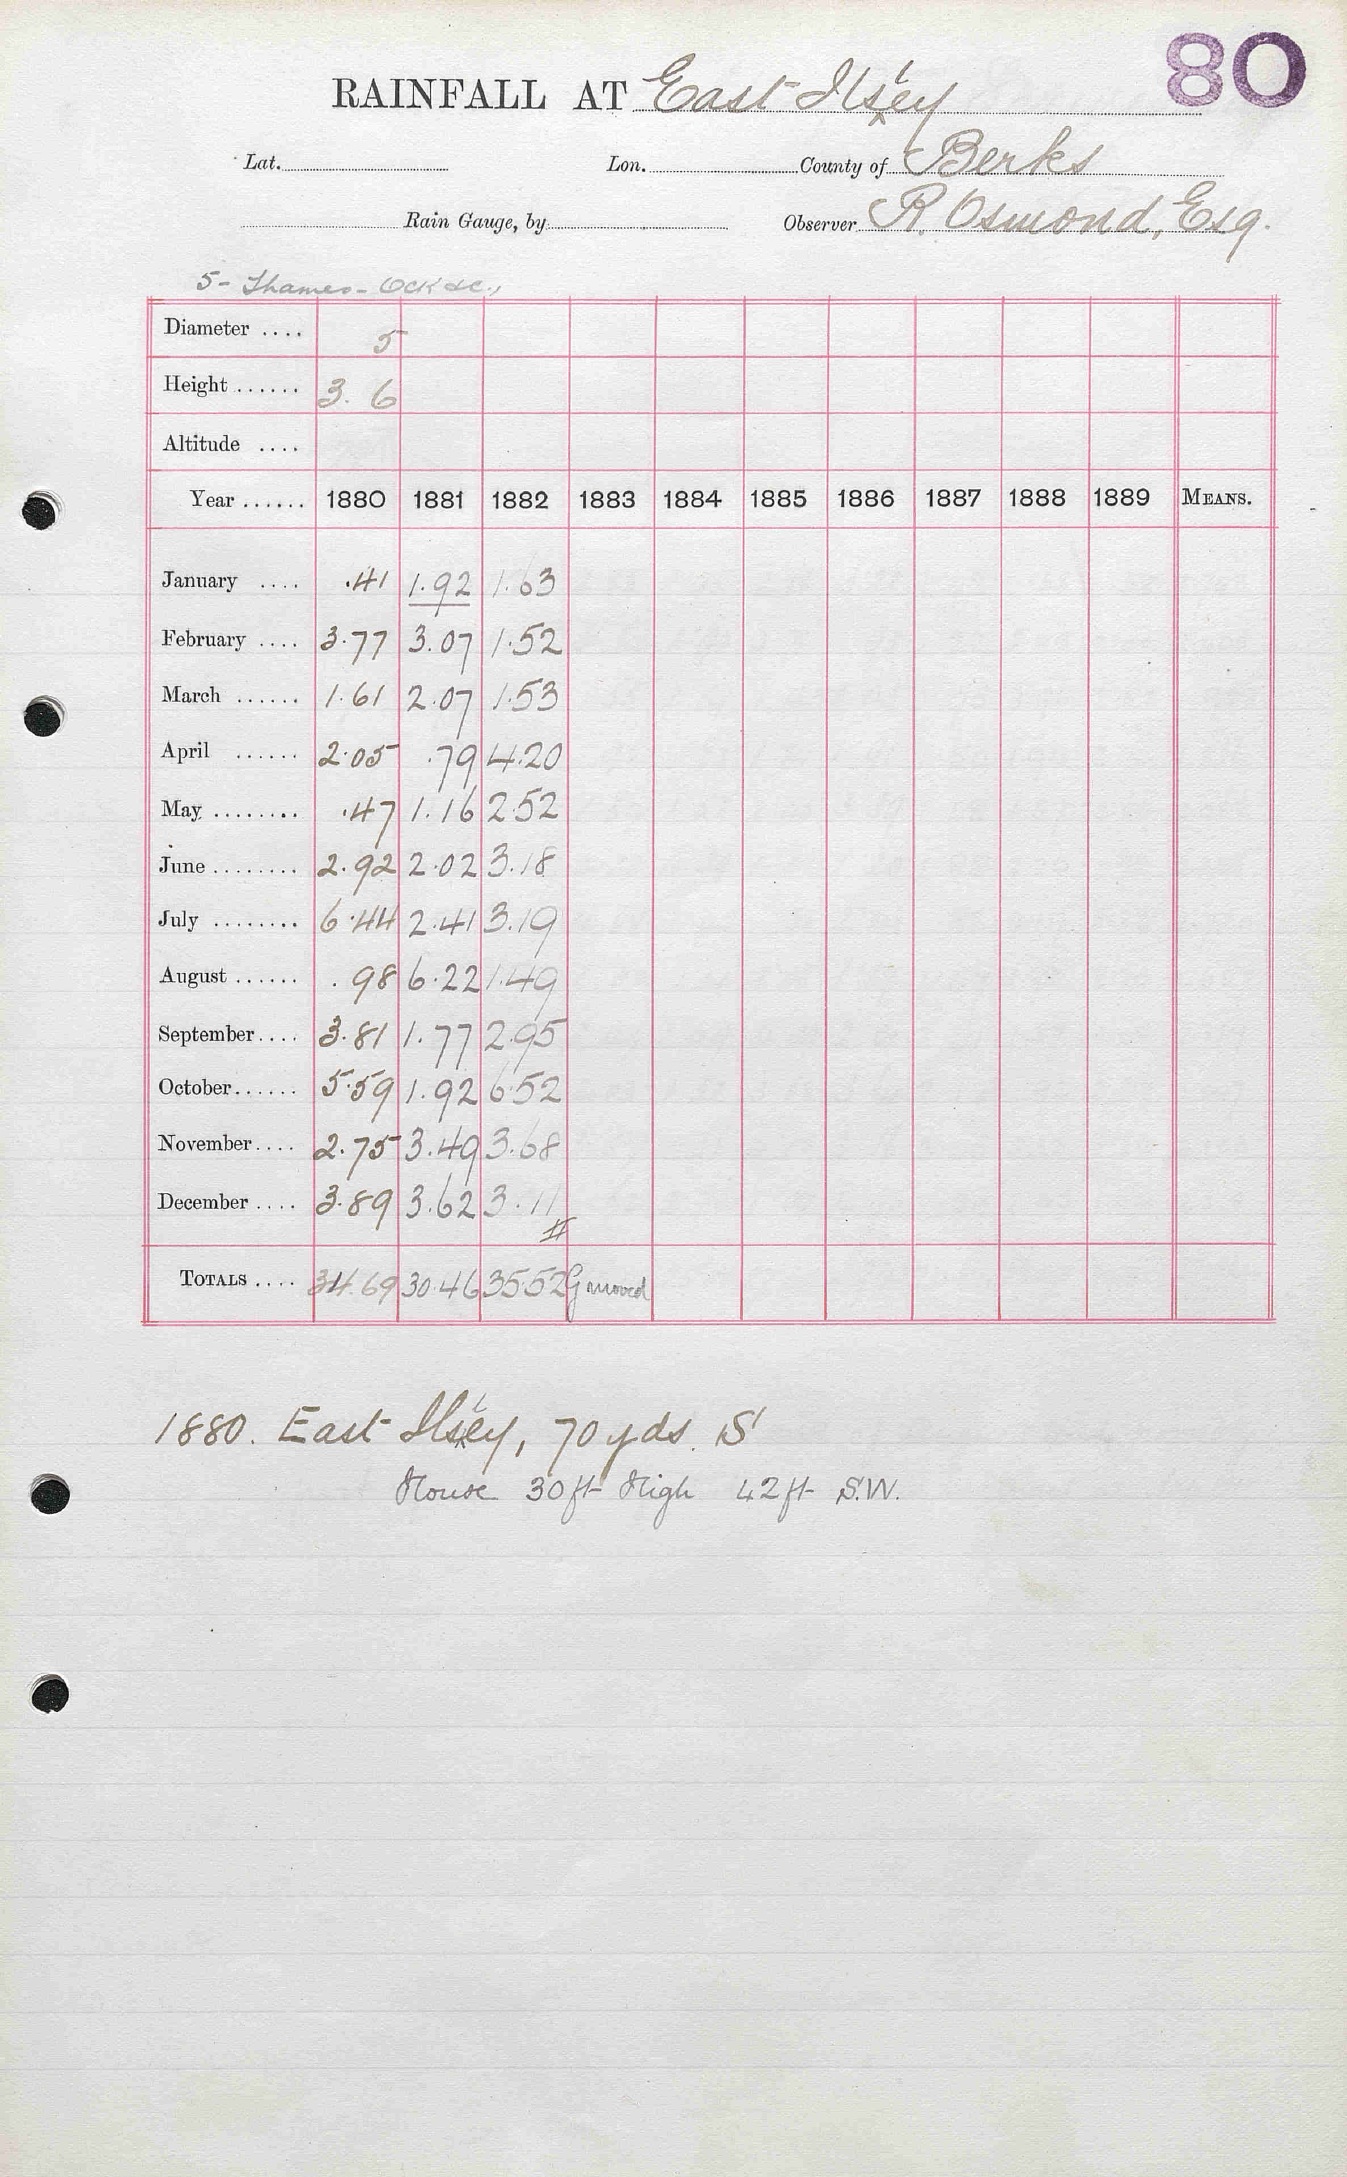 80
RAINFALL AT East Ilsley
Lat. Lon. County of Berks
Rain Gauge, by Observer R. Osmond, Esq.
5 - Thames - Ock &c.,
Diameter .... 5
Height ...... 3. 6
Altitude ....
Year ...... 1880 1881 1882 1883 1884 1885 1886 1887 1888 1889 MEANS.
January .... .41 1.92 1.63
February .... 3.77 3.07 1.52
March ...... 1.61 2.07 1.53
April ...... 2.05 .79 4.20
May ........ .47 1.16 2.52
June ........ 2.92 2.02 3.18
July ........ 6.44 2.41 3.19
August ...... .98 6.22 1.49
September .... 3.81 1.77 2.95
October ...... 5.59 1.92 6.52
November .... 2.75 3.49 3.68
December .... 3.89 3.62 3.11
TOTALS .... 34.69 30.46 35.52 G moved
1880. East Ilsley, 70 yds. S
House 30 ft High 42 ft S.W.